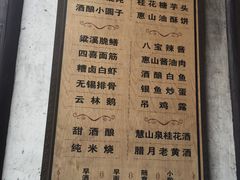 桂花糖芋头
酒酿小圆子
惠山油酥饼
梁溪脆鳝
八宝辣酱
四喜面筋
惠山酱油肉
糟卤白虾
酒酿白鱼
无锡排骨
银鱼炒蛋
云林鹅
吊鸡露
甜酒酿
慧山泉桂花酒
纯米烧
腊月老黄酒
早
早
随
小